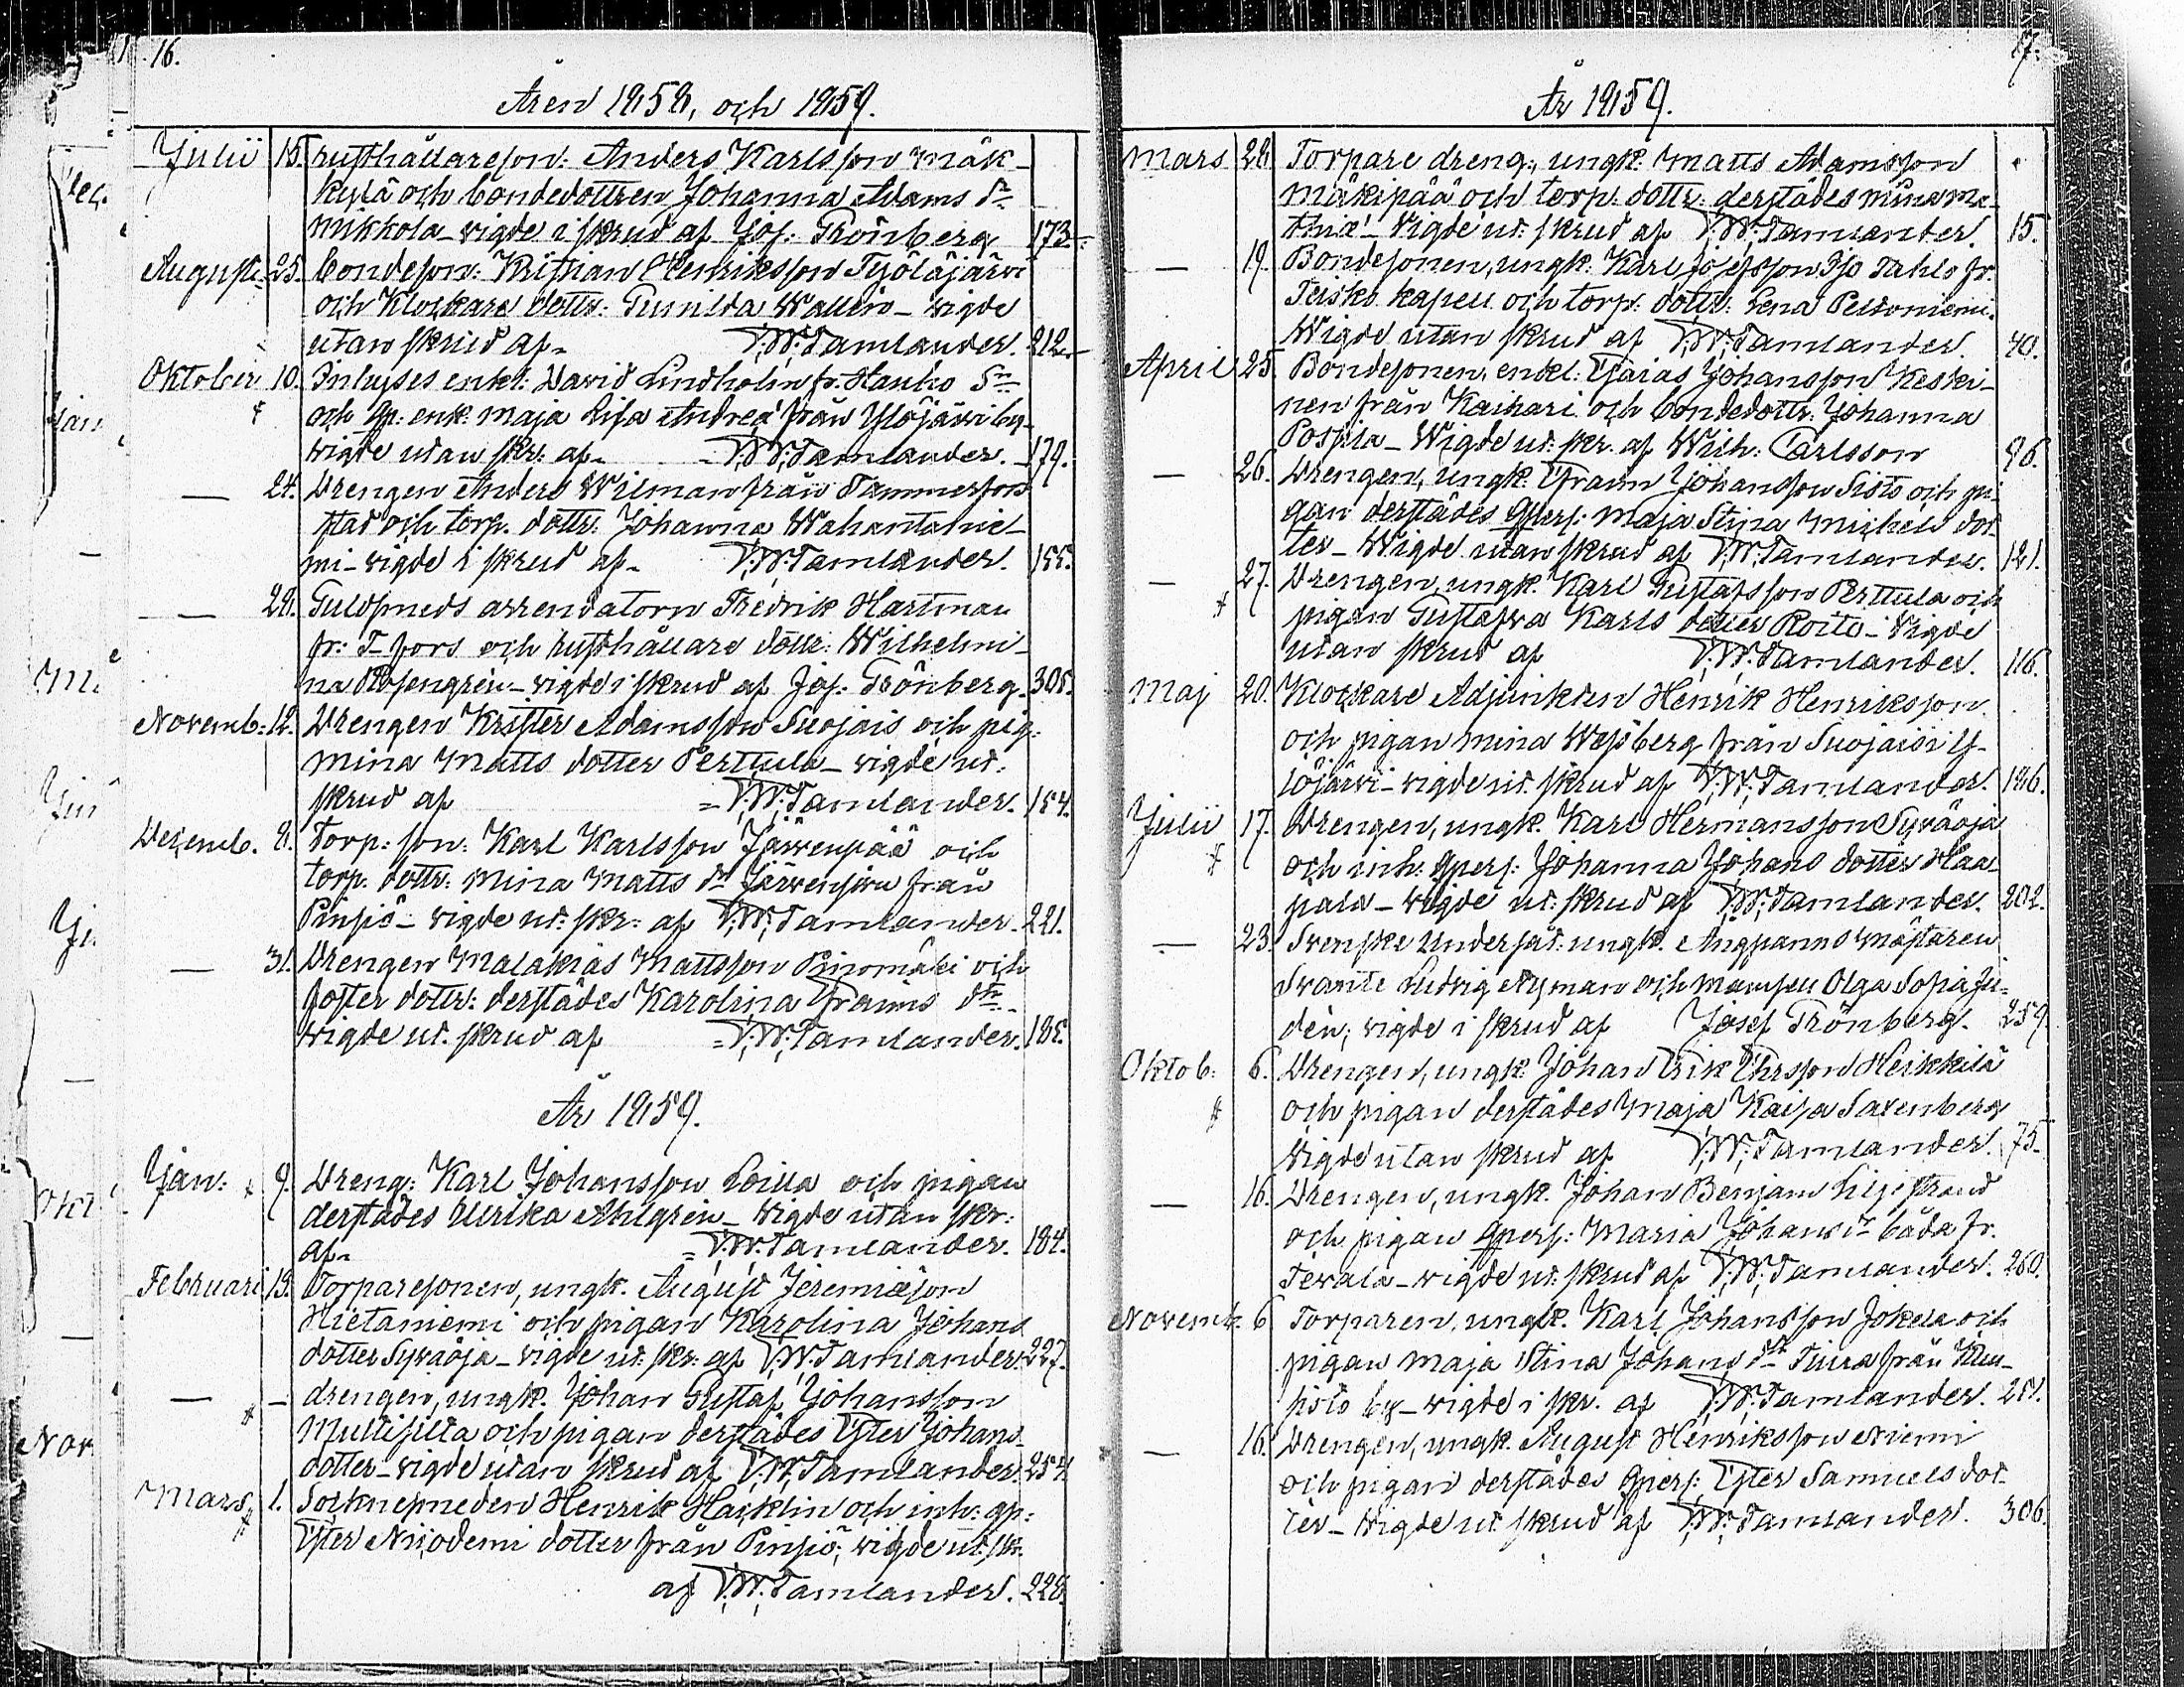 16.
Åren 1858, och 1859.
Julii 18. rusthållareson: Anders Karlsson Mäk-
kylä och bondedottren Johanna Adams dr
Mikkola – vigde i skrud af Jos: Grönberg 173.
August: 25. bondeson: Kristian Henriksson Työläjärvi
och Klockare dottr: Gunilda Wallin – vigde
utan skrud af V:W:Tamlander. 212.
Oktober 10. Inhyses enkl: David Lindholm fr. Hauho Sn
och qp: enk: Maja Lisa Andreæ från Ylöjärvi by-
vigde utan skr: af – V:W:Tamlander. 179.
— 24. Drengen Anders Wilman från Tammerfors
stad och torp. dottr: Johanna Wahantanie-
mi – vigde i skrud af – V:W:Tamlander. 155.
— 28. Guldsmeds arrendatorn Fredrik Hartman
fr: T-fors och rusthållare dottr: Wilhelmi-
na Rosengrén – vigde i skrud af Jos: Grönberg. 305.
Novemb: 12. Drengen Krister Adamsson Suojais och pig:
Mina Matts dotter Perttula – vigde ut:
skrud af = V:W:Tamlander. 154.
Decemb. 8. Torp: son: Karl Karlsson Järvenpää och
torp. dottr: Mina Matts dr Järvensivu från
Pinsiö – vigde ut: skr: af V:W:Tamlander. 221.
— 31. Drengen Malakias Mattsson Pinomäki och
foster dottr: derstädes Karolina Frams dr
vigde ut. skrud af = V:W:Tamlander. 185.
År 1859.
Jan: 9. Dreng: Karl Johansson Loilla och pigan
derstädes Ulrika Ahlgrén – vigde utan skr:
af – = V:W:Tamlander. 184.
Februari 13. Torparesonen, ungk. August Jeremiæson
Hietaniemi och pigan Karolina Johans
dotter Syväoja – vigde ut: skr: af V:W:Tamlander. 227.
— – drengen, ungk. Johan Gustaf Johansson
Multisilta och pigan derstädes Ester Johans-
dotter – vigde utan skrud af V:W:Tamlander. 254.
Mars, 1. Socknesmeden Henrik Hacklin och inh: qp:
Ester Nicodemi dotter från Pinsiö; vigde ut: skr.
af V:W:Tamlander. 228.
17.
År 1859.
Mars 28. Torpare dreng:, ungk: Matts Adamsson
Mäkipää och torp: dottr: derstädes Mina Ma-
thiæ – Vigde ut: skrud af V:W:Tamlander. 15.
— 19. Bondesonen, ungk: Karl Josefsson Iso Tahlo fr.
Teisko kapell och torp: dottr: Lena Peltoniemi.
Wigde utan skrud af V:W:Tamlander. 40.
April 25. Bondesonen, enkl: Esaias Johansson Keski-
nen från Kaihari och bondedottr: Johanna
Pospila – Wigde ut: skr. af Wilh: Carlsson 96.
— 26. Drengen, ungk: Fram Johansson Sisto och pi-
gan derstädes Qpers: Maja Stina Michels dot-
ter – Wigde utan skrud af V:W:Tamlander. 121.
— 27. Drengen, ungk. Karl Gustafsson Perttula och
pigan Gustafva Karls dotter Roito – Vigde
utan skrud af V:W:Tamlander. 116.
Maj 20. Klockare Adjunkten Henrik Henriksson
och pigan Mina Wessberg från Suojais i Y-
löjärvi – vigde ut. skrud af V:W:Tamlander. 186.
Julii 17. Drengen, ungk. Karl Hermansson Syväoja
och inh: Qpers: Johanna Johans dotter Haa-
pala – vigde ut: skrud af V:W:Tamlander. 202.
— 23. Svenske Undersåt: ungk. Ångpanns Mästaren
Svante Ludvig Nyman och Mamsell Olga Sofia Ju-
dén; vigde i skrud af Josef Grönberg. 259.
Oktob: 6. Drengen, ungk. Johan Erik Ehrsson Heikkilä
och pigan derstädes Maja Kaisa Saxenberg
vigde utan skrud af V:W:Tamlander. 75.
— 16. Drengen, ungk. Johan Benjam Liljestrand
och pigan Qpers: Maria Johans dr båda fr.
Tevala – vigde ut: skrud af V:W:Tamlander. 260.
Novemb. 6 Torparen, ungk. Karl Johansson Jokela och
pigan Maja Stina Johans dr Tiura från Kuu-
sistö by – vigde i skr. af V:W:Tamlander. 251.
— 16. Drengen, ungk. August Henriksson Niemi
och pigan derstädes Qpers: Ester Samuels dot-
ter – vigde ut skrud af V:W:Tamlander. 306.